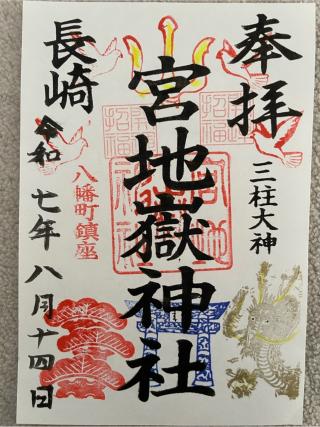 奉拝
三柱大神
宮地嶽神社
長崎
八幡町鎮座
令和七年八月十四日